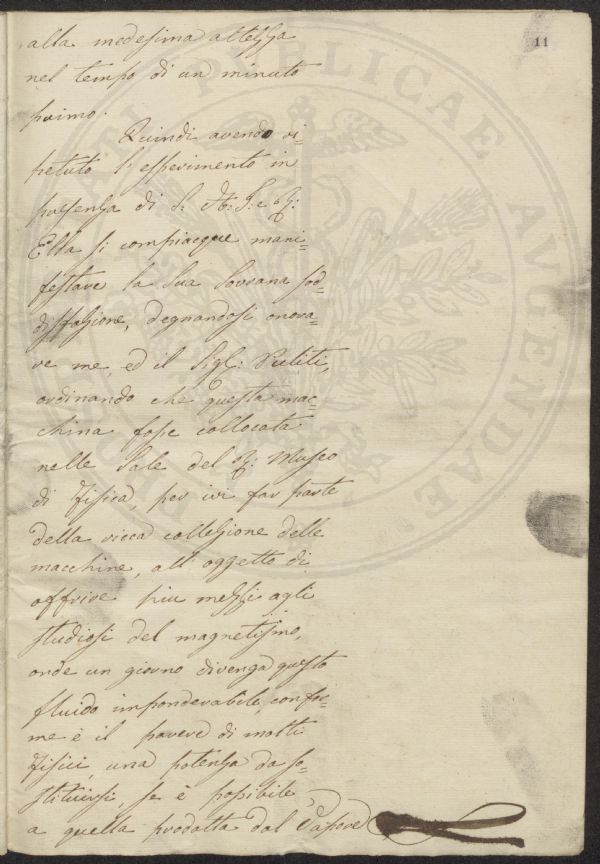 11
alla medesima altezza
nel tempo di un minuto
primo.
Quindi avendo ri=
petuto l'esperimento in
presenza di S: A: I: e R:
Ella si compiacque mani=
festare la Sua Sovrana sod=
disfazione, degnandosi onora=
re me, ed il Sigr: Puliti,
ordinando che questa mac=
china fosse collocata
nelle Sale del R: Museo
di Fisica, per ivi far parte
della ricca collezione delle
macchine, all'oggetto di
offrire piu mezzi agli
studiosi del magnetismo,
onde un giorno divenga questo
fluido imponderabile, confor=
me è il parere di molti
Fisici, una potenza da so=
stituirsi, se è possibile,
a quella prodotta dal Vapore
PUBLICAE
AUGENDAE